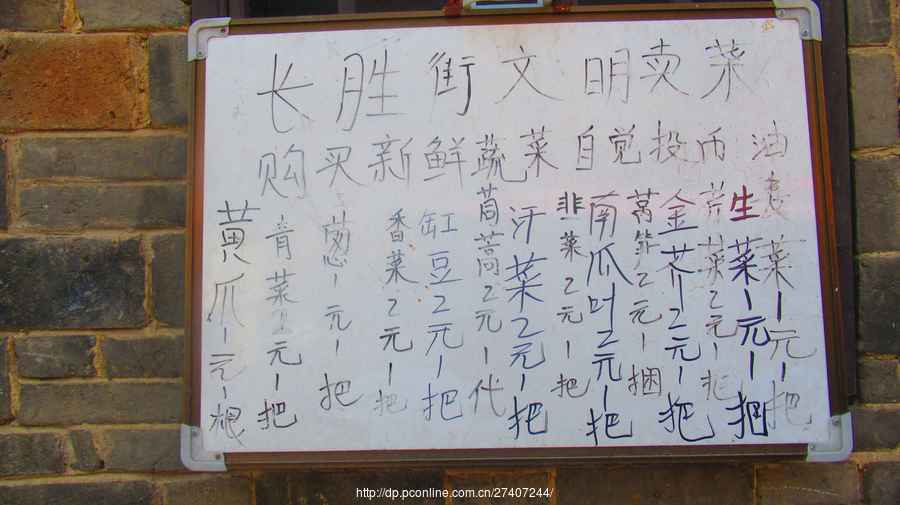 长胜街文明卖菜
购买新鲜蔬菜自觉投币
黄瓜1元1根
青菜2元1把
葱1元1把
香菜2元1把
缸豆2元1把
茼蒿2元1代
汗菜2元1把
韭菜2元1把
南瓜叶2元1把
莴笋2元1捆
金芥2元1把
菜2元1把
生菜1元1把
油麦菜1元1把
http://dp.pconline.com.cn/27407244/